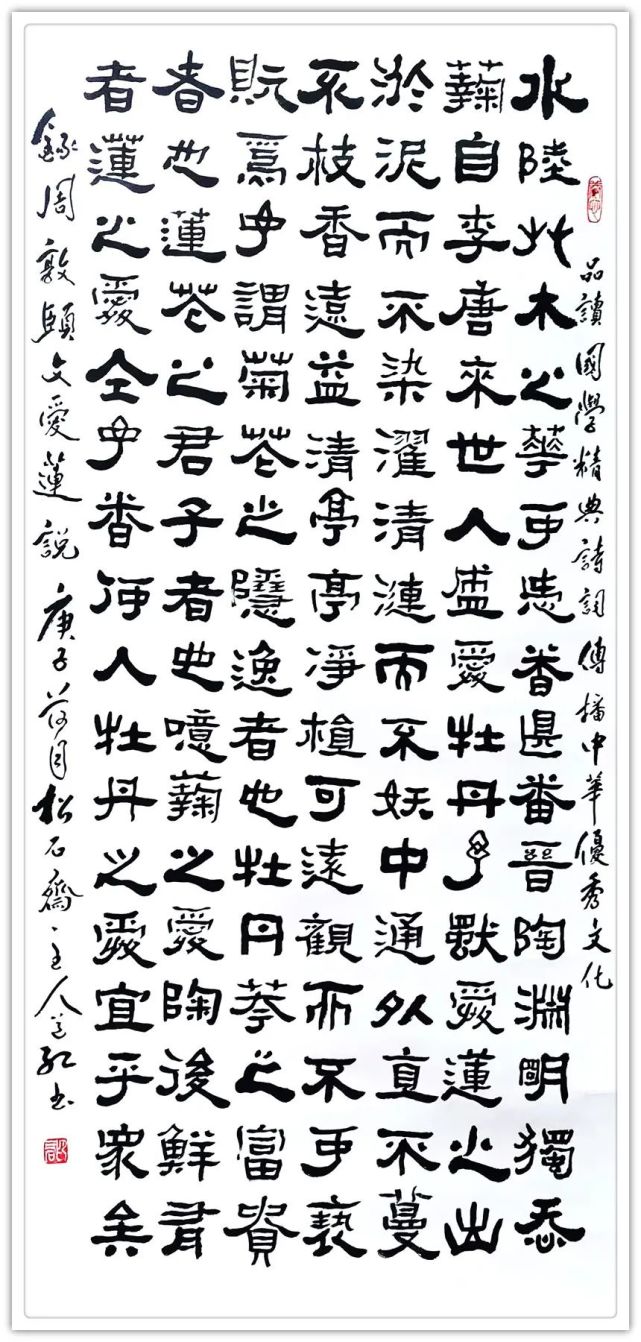 品讀國學精典詩詞傳播中華優秀文化
水陸艸木之華可㤅者甚番晉陶淵明獨㤅
蘜自李唐來世人盛愛牡丹予獸愛蓮之出
淤泥而不染濯清漣而不妖中通外直不蔓
不枝香遠益清亭亭凈植可遠觀而不可褻
貦焉予謂菊芲之隱逸者也牡丹荂之富貴
者也蓮芲之君子者也噫蘜之愛陶後鮮有
者蓮之愛仝予者何人牡丹之愛宜乎眾矣
錄周敦頤文愛蓮說庚子荷月松石齋主人書